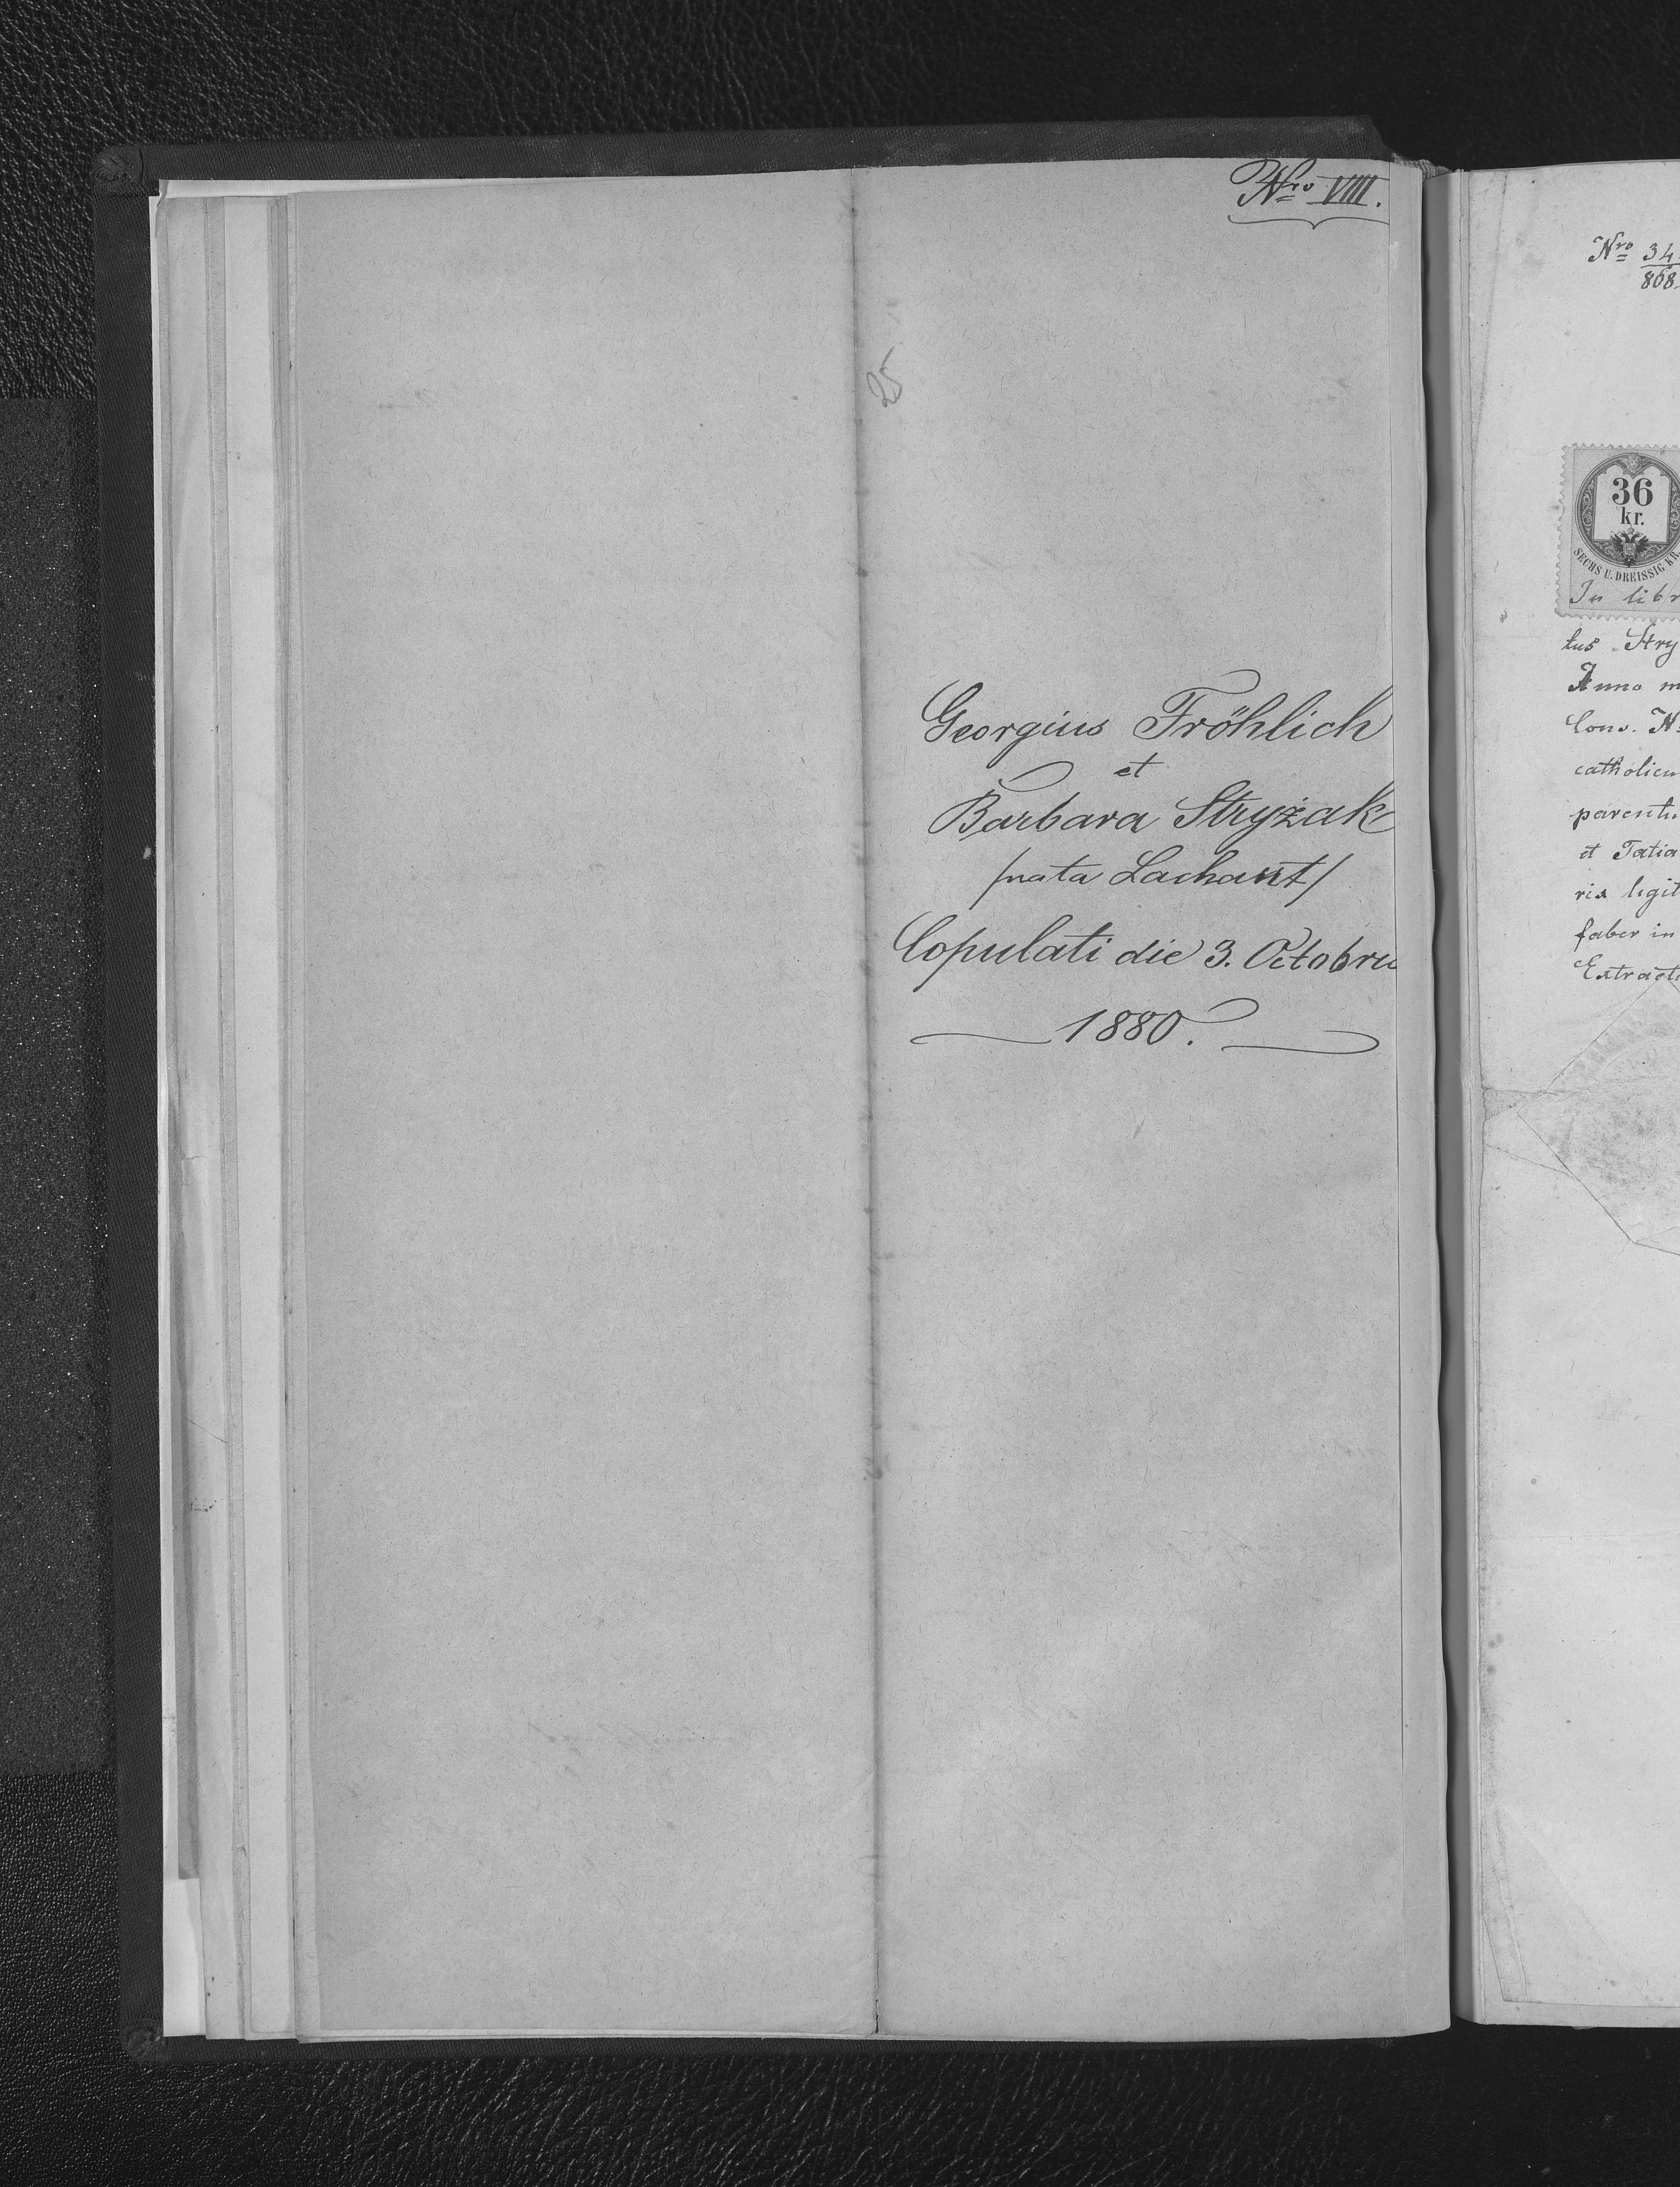 Nro VIII.
25
Georgius Fröhlich
et
Barbara Stryżak
/nata Lachant/
Copulati die 3. Octobris
1880.
Nro 34
868.
36
kr.
SECHS U. DREISSIG KR.
In libr
tus Stry
Anno m
Cons. N
catholicu
parentu
et Tatia
ris legit
faber in
Extract